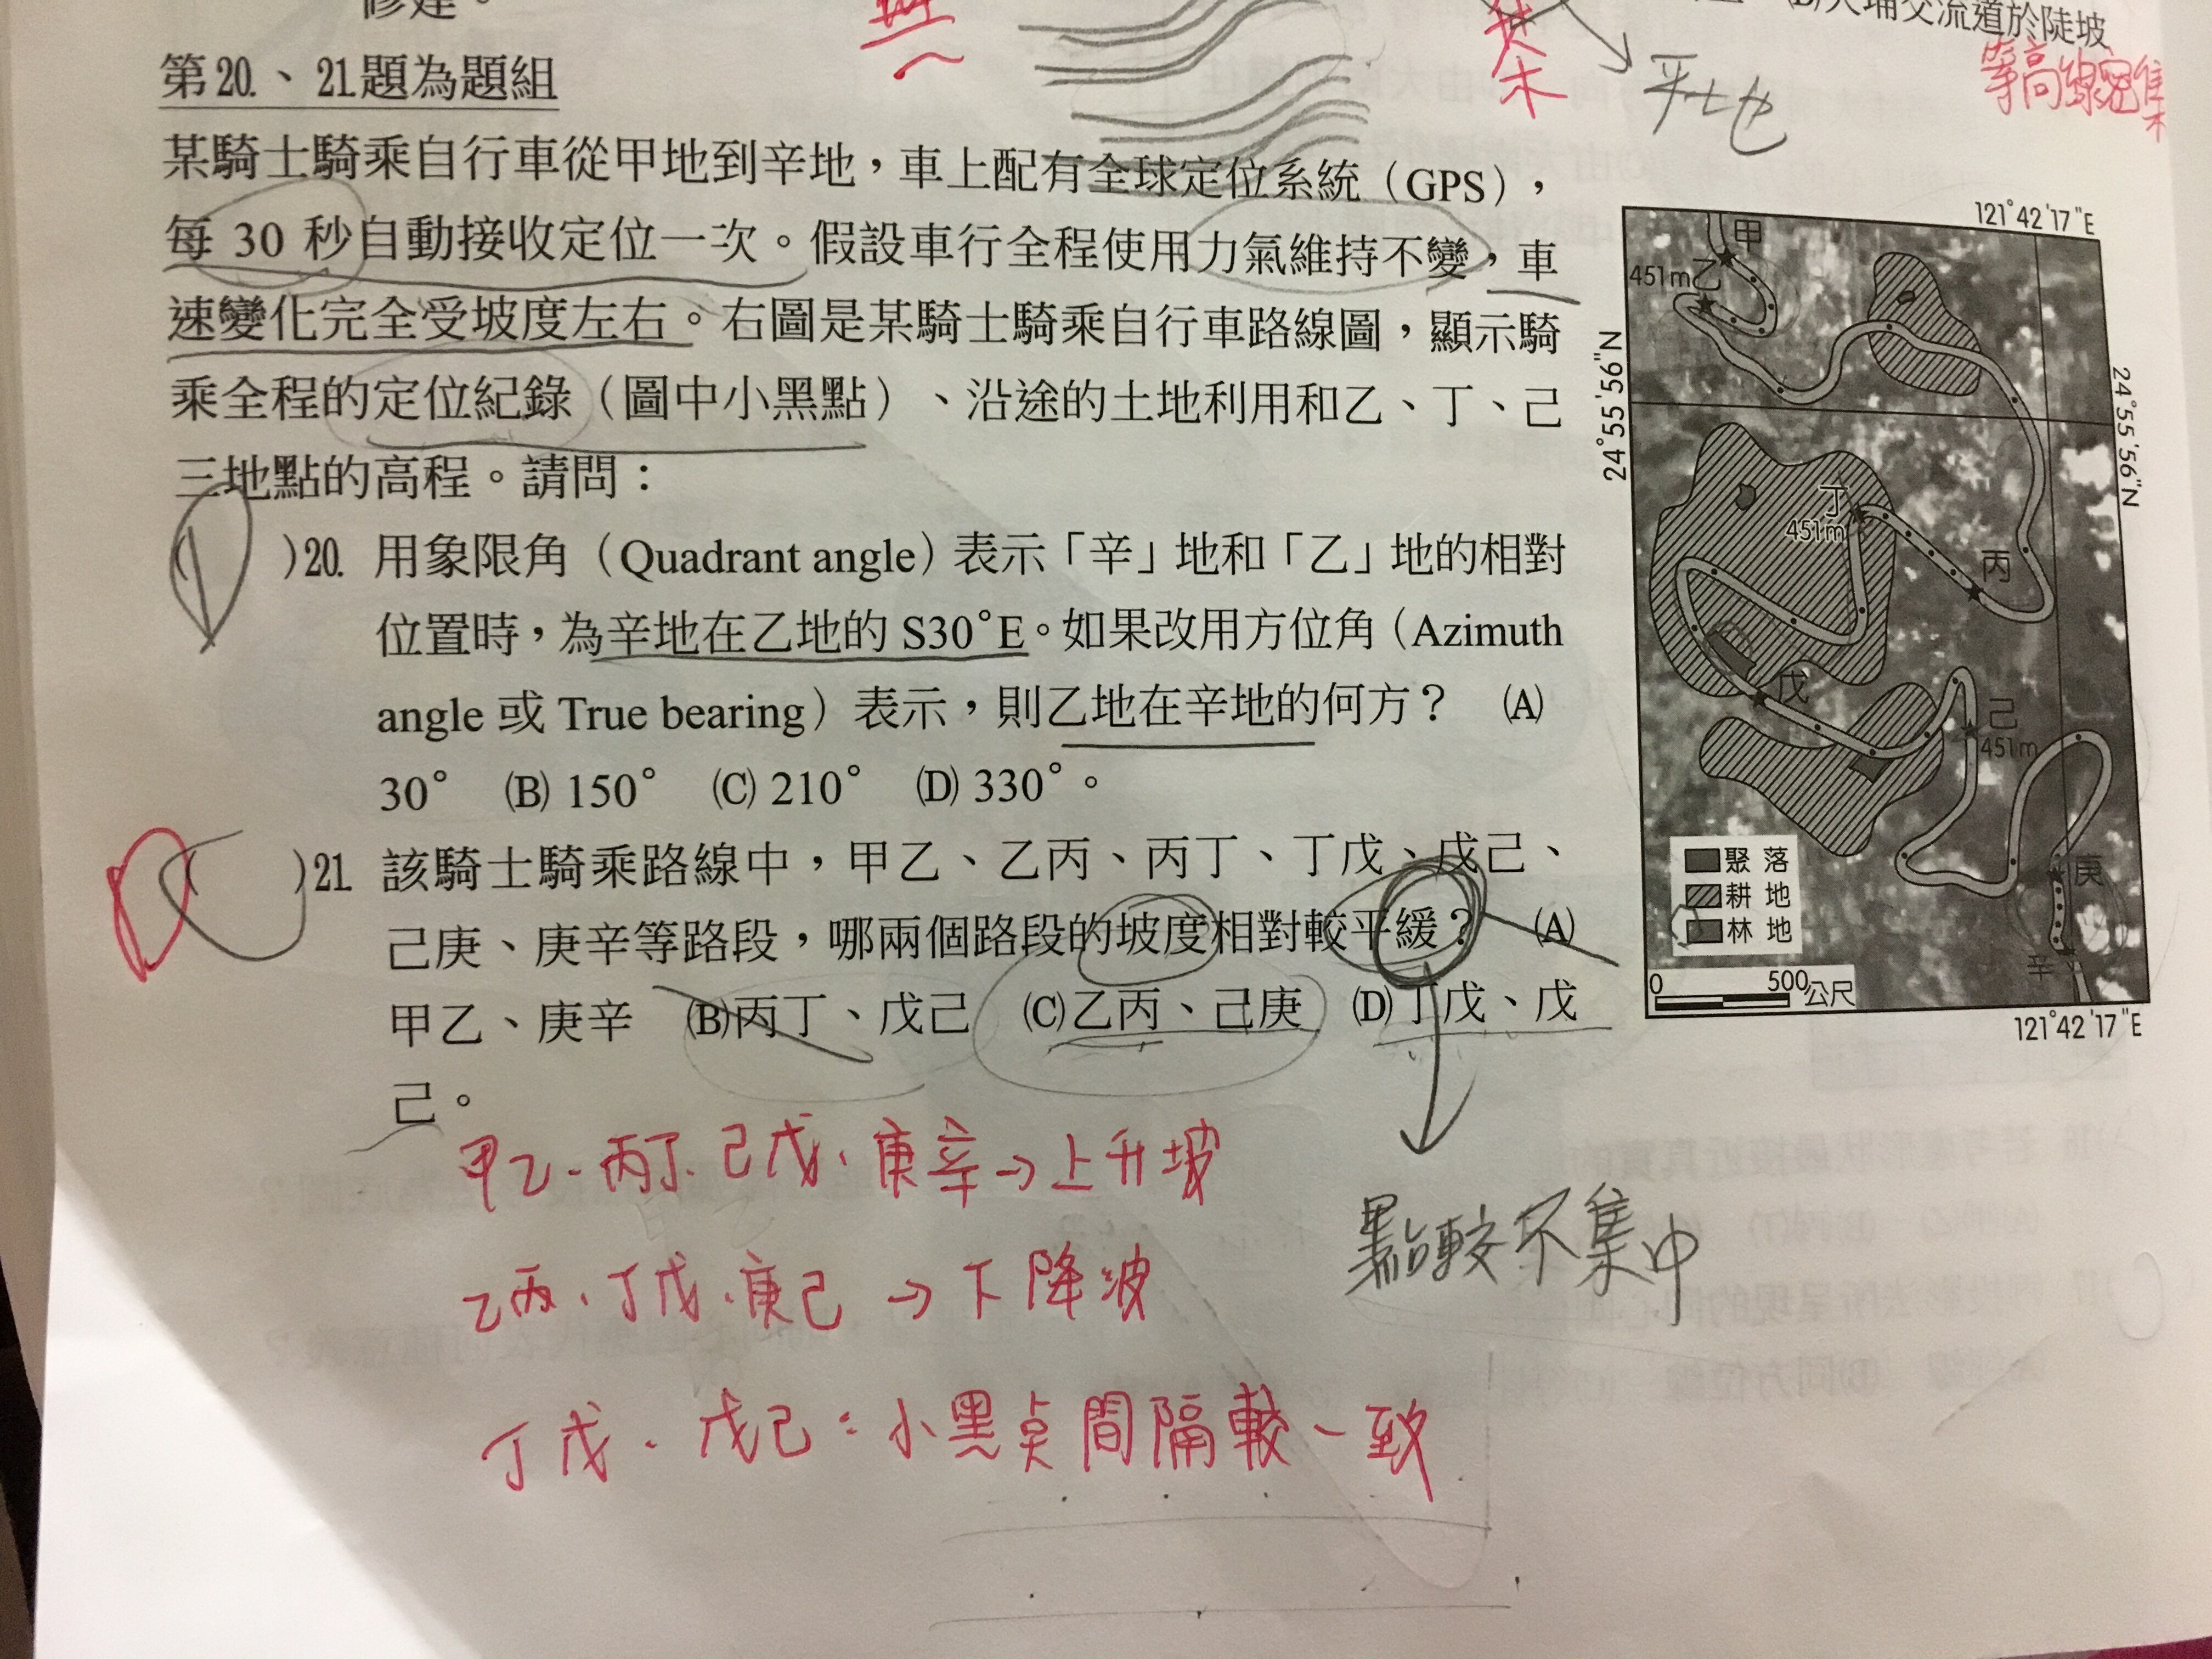 修建。
(D)大埔交流道於陡坡
等高線密集
平地
第20.、21.題為題組
某騎士騎乘自行車從甲地到辛地，車上配有全球定位系統（GPS），
每 30 秒自動接收定位一次。假設車行全程使用力氣維持不變，車
速變化完全受坡度左右。右圖是某騎士騎乘自行車路線圖，顯示騎
乘全程的定位紀錄（圖中小黑點）、沿途的土地利用和乙、丁、己
三地點的高程。請問：
( )20. 用象限角（Quadrant angle）表示「辛」地和「乙」地的相對
位置時，為辛地在乙地的 S30°E。如果改用方位角（Azimuth
angle 或 True bearing）表示，則乙地在辛地的何方？ (A)
30° (B) 150° (C) 210° (D) 330°。
( )21. 該騎士騎乘路線中，甲乙、乙丙、丙丁、丁戊、戊己、
己庚、庚辛等路段，哪兩個路段的坡度相對較平緩？ (A)
甲乙、庚辛 (B)丙丁、戊己 (C)乙丙、己庚 (D)丁戊、戊
己。
121°42'17"E
甲
451m乙
24°55'56"N
24°55'56"N
丁
451m
丙
戊
己
451m
庚
辛
聚落
耕地
林地
0 500公尺
121°42'17"E
甲乙、丙丁、己戊、庚辛→上升坡
點較不集中
乙丙、丁戊、庚己→下降坡
丁戊、戊己：小黑点間隔較一致